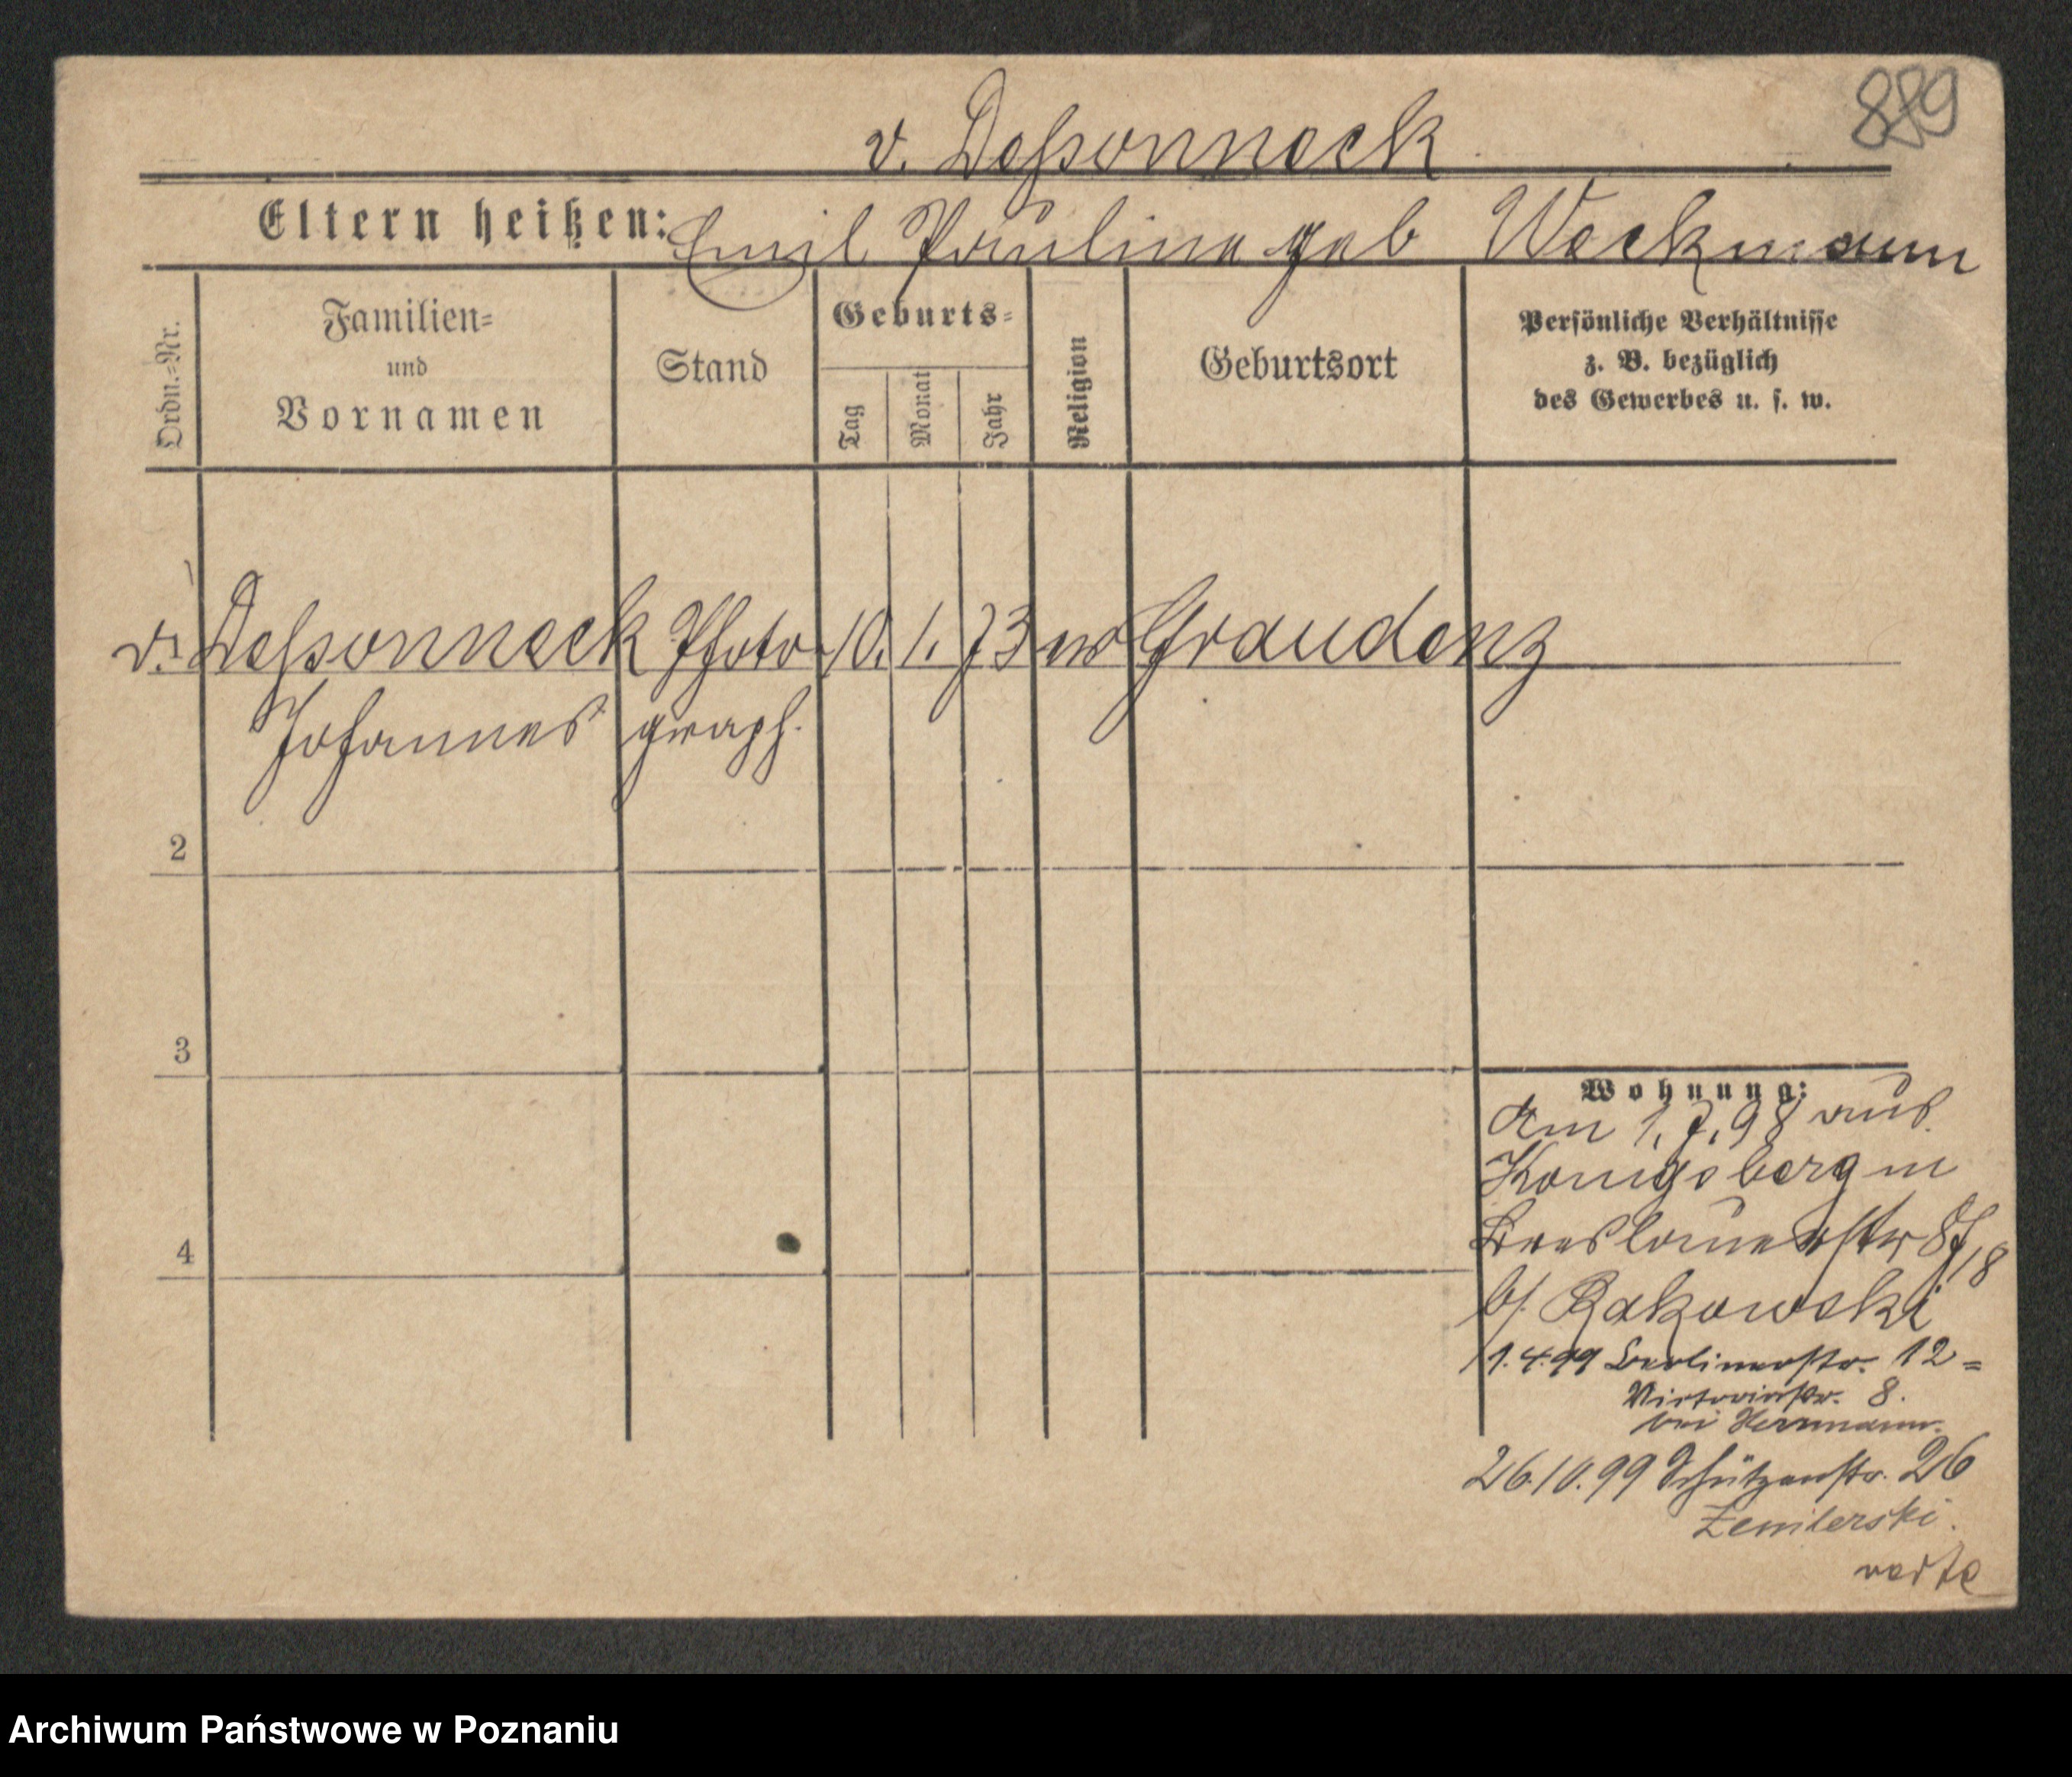 889
v. Dessonneck
Eltern heißen: Emil Pauline geb Weckmann
Ordn.=Nr.
Familien=
und
Vornamen
Stand
Geburts=
Tag
Monat
Jahr
Religion
Geburtsort
Persönliche Verhältnisse
z. B. bezüglich
des Gewerbes u. s. w.
v. Dessonneck Photo 10. 1. 73 ev Graudenz
Johannes graph.
2
3
4
Wohnung:
Am 1. 7. 98 aus
Königsberg in
Breslauerstr
b/. Rakowski
1.4.99 Berlinerstr. 12 =
Victoriastr. 8.
bei Herrmann.
26.10.99 Schützenstr. 26
verte
Archiwum Państwowe w Poznaniu